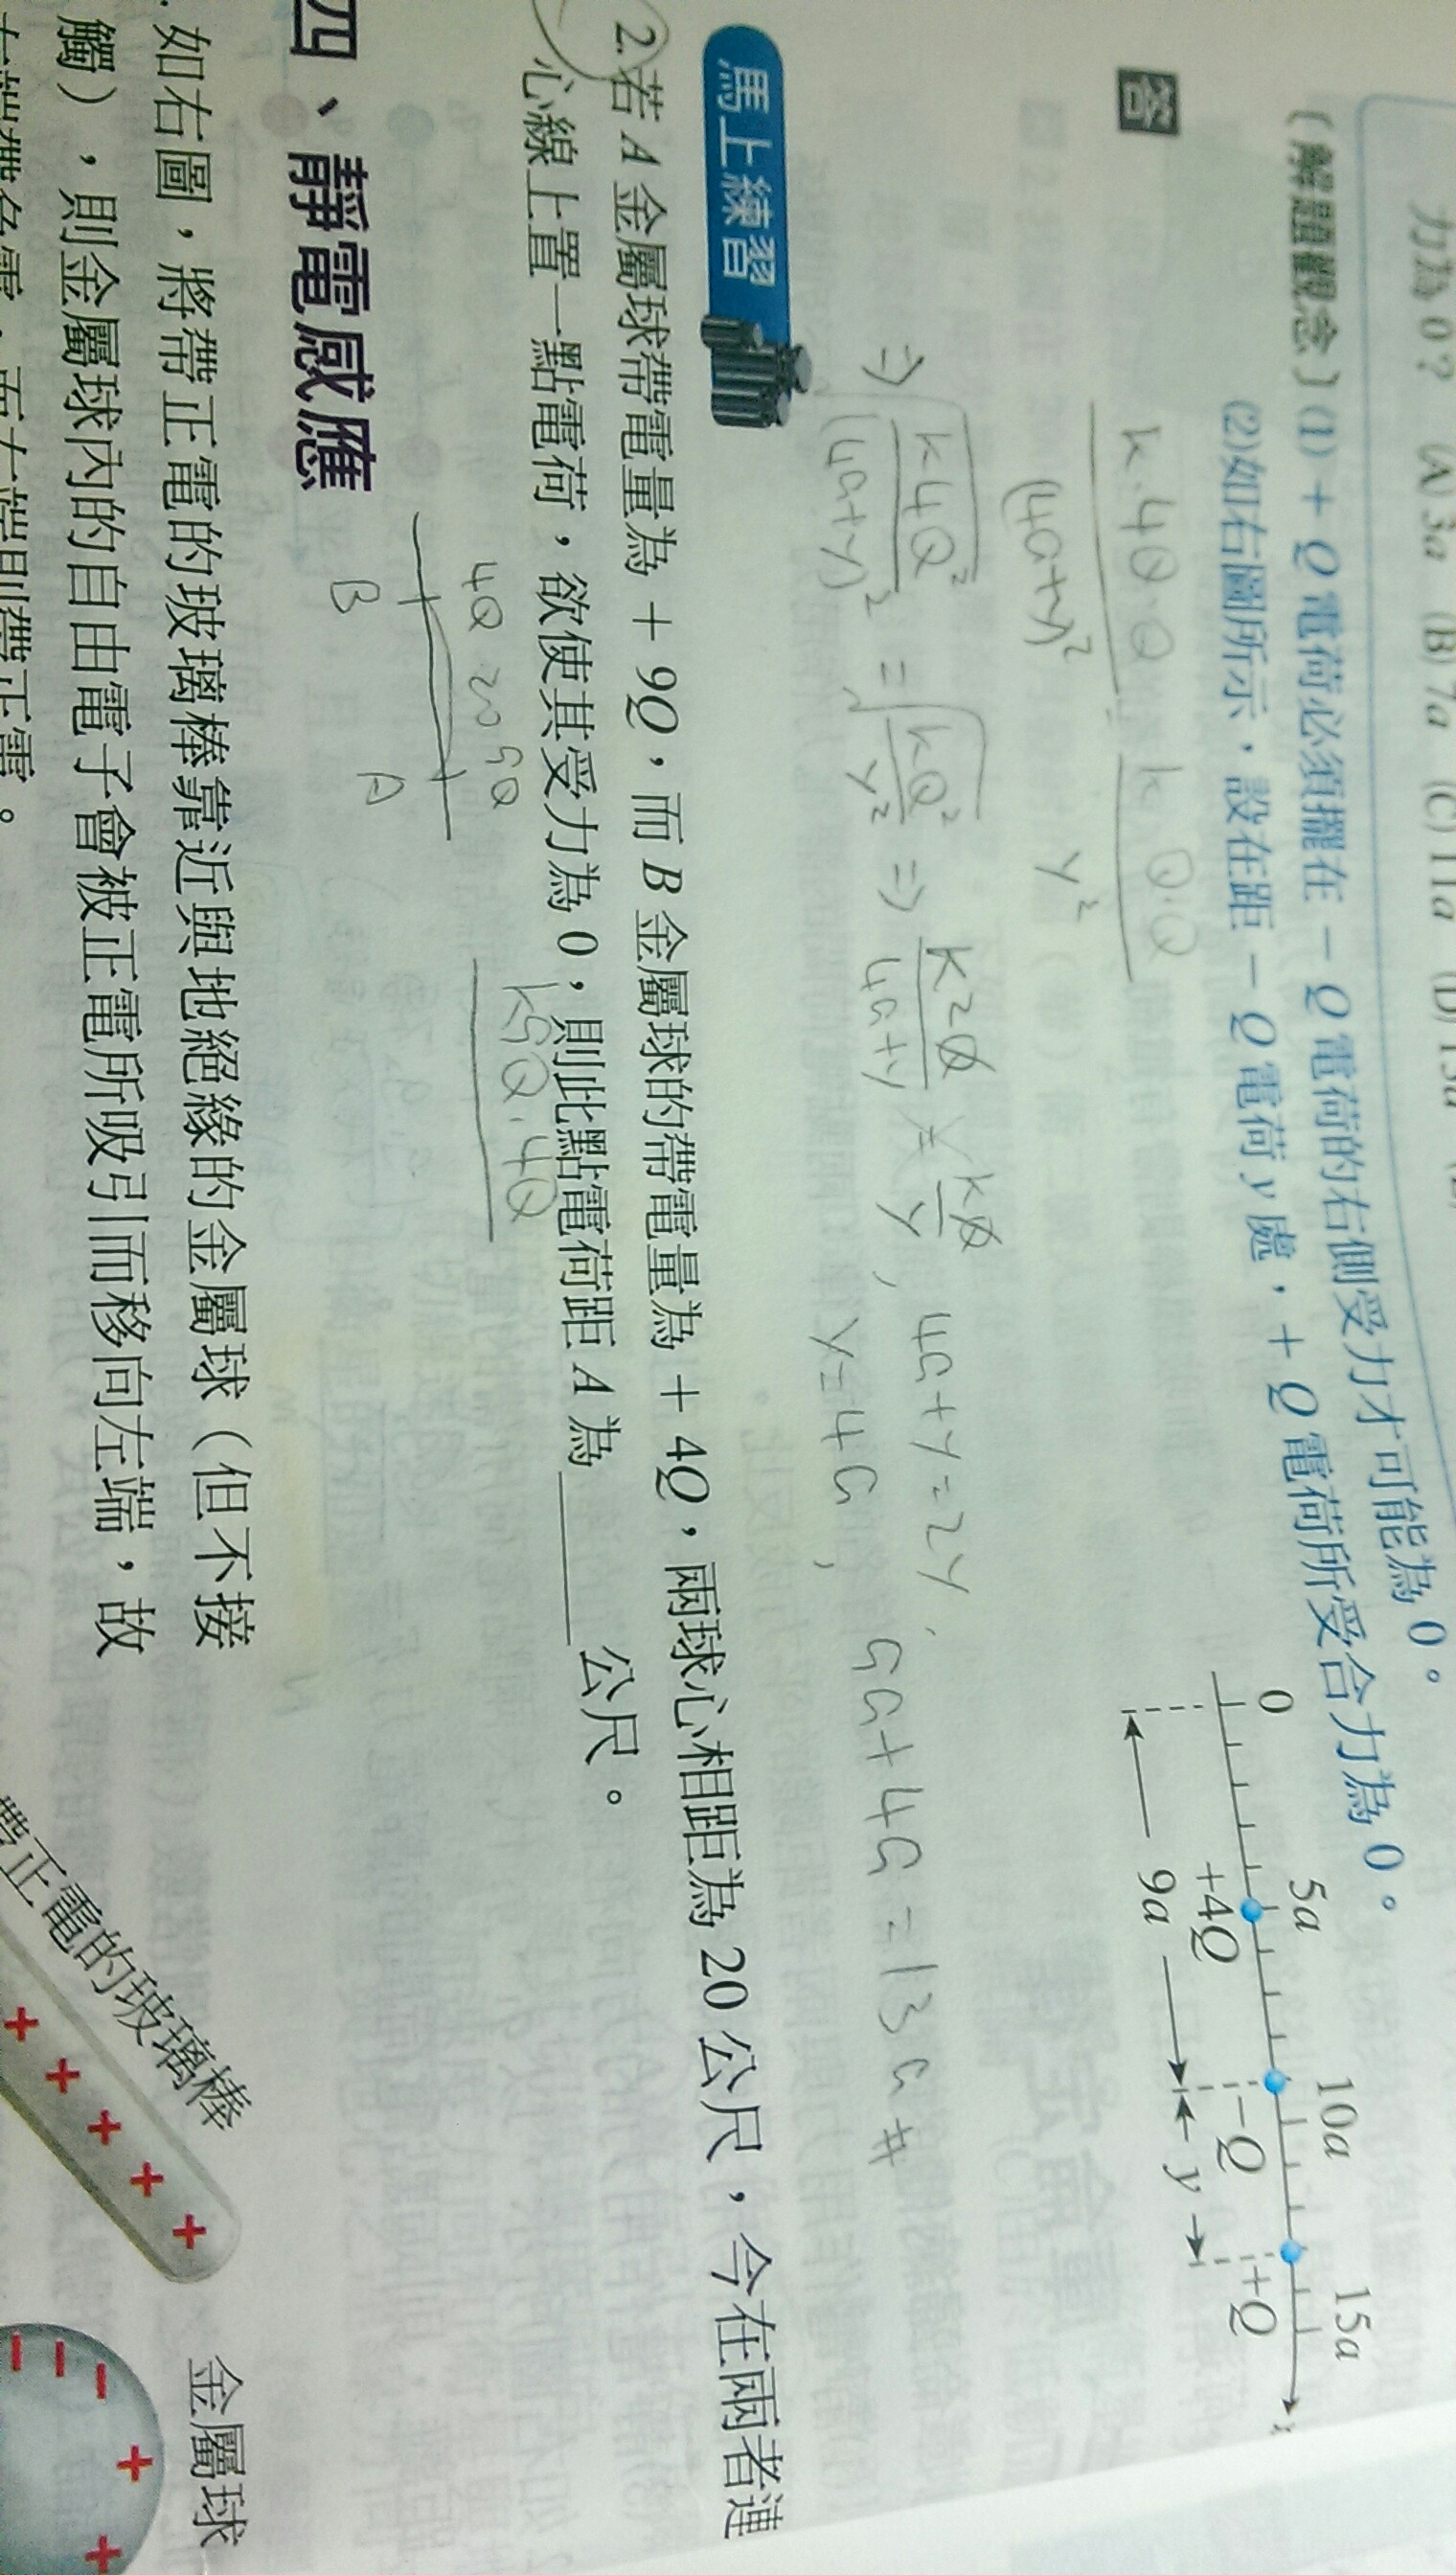 力為 0？ (A) 3a (B) 7a (C) 11a
〔解題觀念〕(1) + Q 電荷必須擺在 − Q 電荷的右側受力才可能為 0。
(2)如右圖所示，設在距 − Q 電荷 y 處，+ Q 電荷所受合力為 0。
答
0 5a 10a 15a x
+4Q −Q +Q
9a y
k·4Q·Q / (4a+y)² = k Q·Q / y²
⇒ √(k4Q² / (4a+y)²) = √(kQ² / y²) ⇒ k2Q / 4a+y = kQ / y , 4a+y=2y,
y=4a, 9a+4a=13a #
馬上練習
2.若 A 金屬球帶電量為 + 9Q，而 B 金屬球的帶電量為 + 4Q，兩球心相距為 20 公尺，今在兩者連
心線上置一點電荷，欲使其受力為 0，則此點電荷距 A 為______公尺。
4Q 20 9Q
B A
k9Q·4Q
四、靜電感應
如右圖，將帶正電的玻璃棒靠近與地絕緣的金屬球（但不接
觸），則金屬球內的自由電子會被正電所吸引而移向左端，故
左端帶負電，而右端則帶正電。
帶正電的玻璃棒
+ + + + +
金屬球
− − − + +